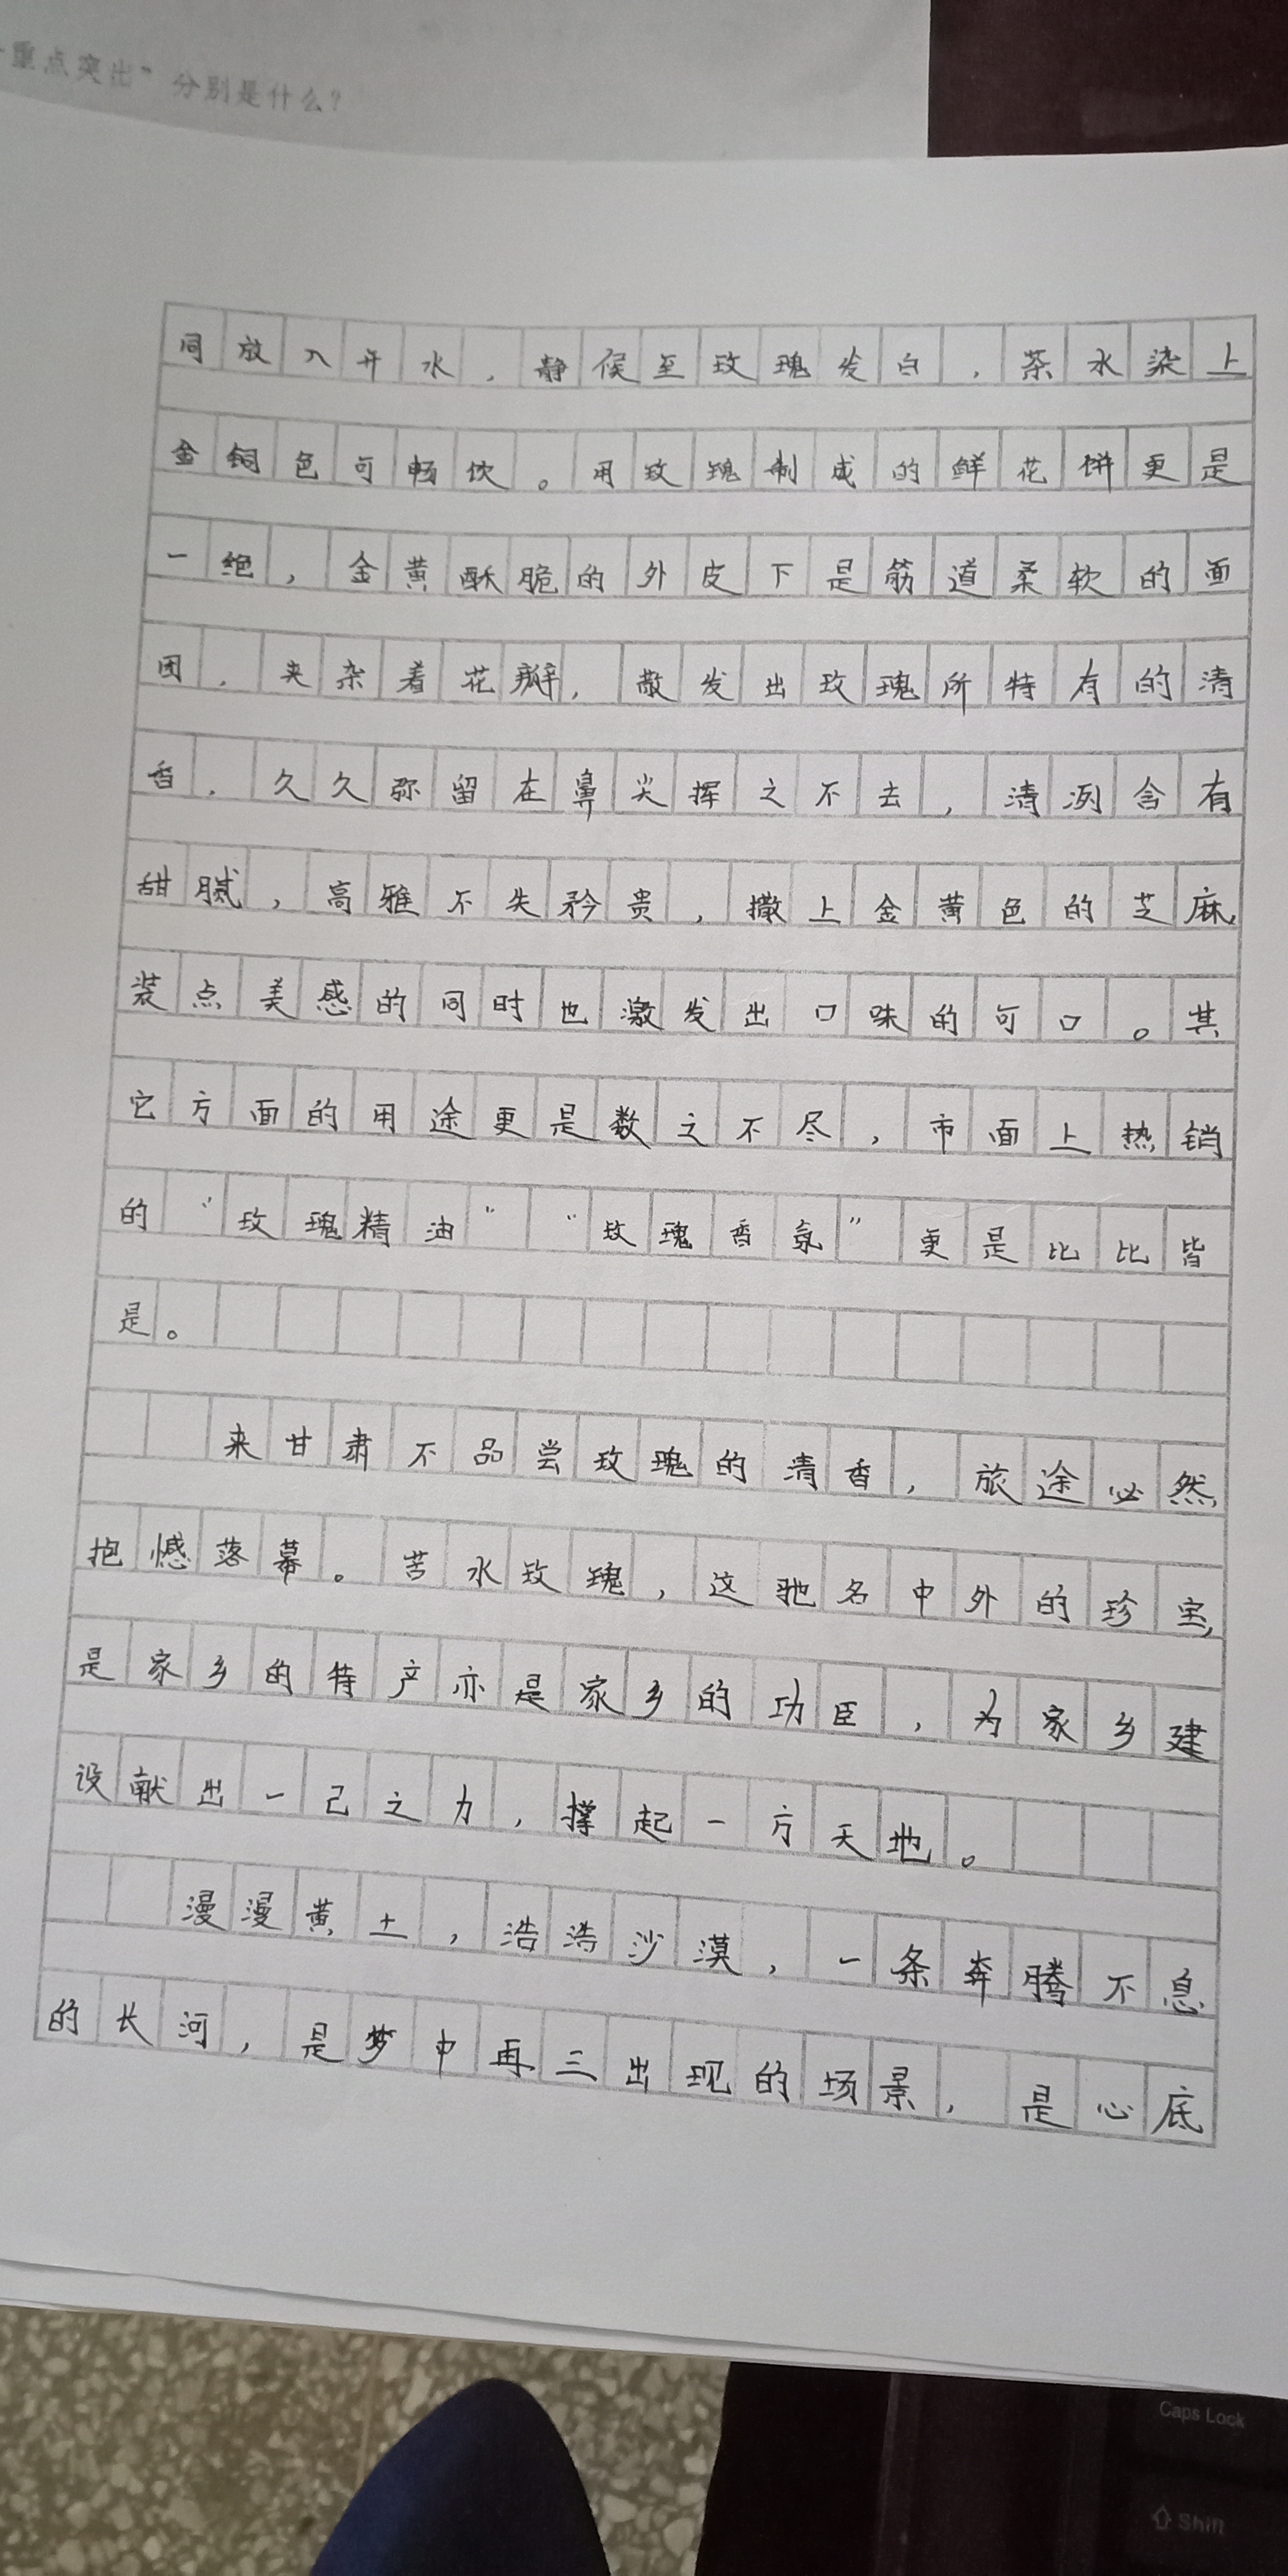 重点突出”分别是什么？
同放入开水，静候至玫瑰发白，茶水染上
金铜色可畅饮。用玫瑰制成的鲜花饼更是
一绝，金黄酥脆的外皮下是筋道柔软的面
团，夹杂着花瓣，散发出玫瑰所特有的清
香，久久弥留在鼻尖挥之不去，清冽含有
甜腻，高雅不失矜贵，撒上金黄色的芝麻，
装点美感的同时也激发出口味的可口。其
它方面的用途更是数之不尽，市面上热销
的“玫瑰精油”“玫瑰香氛”更是比比皆
是。
来甘肃不品尝玫瑰的清香，旅途必然
抱憾落幕。苦水玫瑰，这驰名中外的珍宝，
是家乡的特产亦是家乡的功臣，为家乡建
设献出一己之力，撑起一方天地。
漫漫黄土，浩浩沙漠，一条奔腾不息
的长河，是梦中再三出现的场景，是心底
Caps Lock
Shift